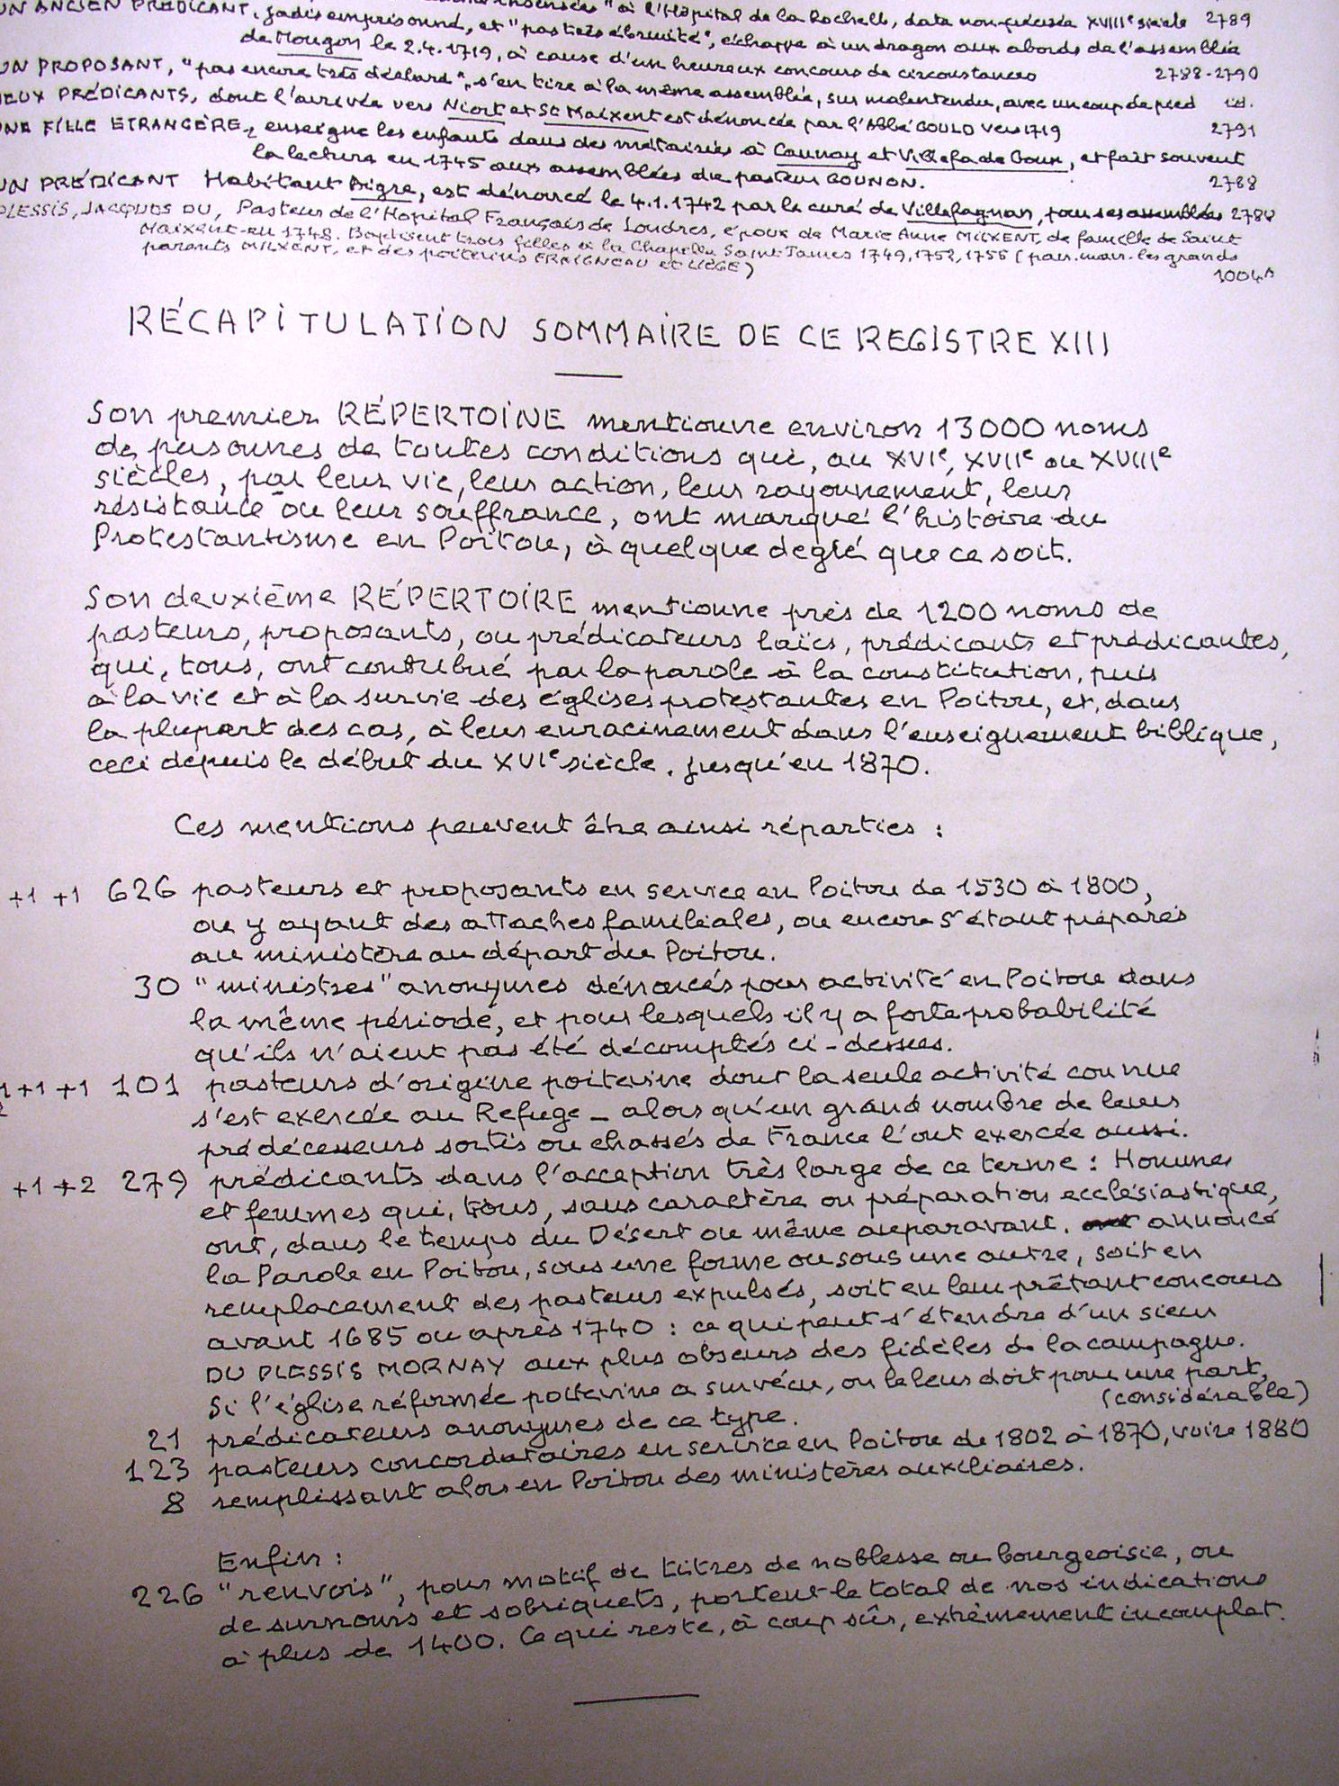 UN ANCIEN PRÉDICANT, jadis emprisonné, et "pasteur" à l'Hôpital de la Rochelle, data non précisée XVIIIe siècle 2789
de Mougon le 2.4.1719, à cause d'un heureux concours de circonstances 2788-2790
UN PROPOSANT, "pas encore très déclaré", s'en tire à la même assemblée, sur malentendu, avec un coup de pied id.
DEUX PRÉDICANTS, dont l'arrivée vers Niort et St Maixent est dénoncée par l'Abbé GOULD vers 1719 2791
UNE FILLE ETRANGÈRE, enseigne les enfants dans des métairies à Caunay et Villefa de Coux, et fait souvent
la lecture en 1745 aux assemblées du pasteur GOUNON. 2788
UN PRÉDICANT Habitant Aigre, est dénoncé le 4.1.1742 par le curé de Villefagnan, pour ses assemblées 2788
PLESSIS, JACQUES DU, Pasteur de l'Hopital Français de Londres, époux de Marie Anne MILXENT, de famille de Saint
Maixent en 1748. Baptisent trois filles à la Chapelle Saint-James 1749, 1752, 1755 (parr. marr. les grands
parents MILXENT, et des poitevins ERAIGNEAU et LIÈGE)
1004A
RÉCAPITULATION SOMMAIRE DE CE REGISTRE XIII
Son premier RÉPERTOINE mentionne environ 13000 noms
de personnes de toutes conditions qui, au XVIe, XVIIe ou XVIIIe
siècles, par leur vie, leur action, leur rayonnement, leur
résistance ou leur souffrance, ont marqué l'histoire du
Protestantisme en Poitou, à quelque degré que ce soit.
Son deuxième RÉPERTOIRE mentionne près de 1200 noms de
pasteurs, proposants, ou prédicateurs laïcs, prédicants et prédicantes,
qui, tous, ont contribué par la parole à la constitution, puis
à la vie et à la survie des églises protestantes en Poitou, et, dans
la plupart des cas, à leur enracinement dans l'enseignement biblique,
ceci depuis le début du XVIe siècle, jusqu'en 1870.
Ces mentions peuvent être ainsi réparties :
+1 +1 626 pasteurs et proposants en service en Poitou de 1530 à 1800,
ou y ayant des attaches familiales, ou encore s'étant préparés
au ministère au départ du Poitou.
30 "ministres" anonymes dénoncés pour activité en Poitou dans
la même période, et pour lesquels il y a forte probabilité
qu'ils n'aient pas été décomptés ci-dessus.
+1 +1 101 pasteurs d'origine poitevine dont la seule activité connue
s'est exercée au Refuge - alors qu'un grand nombre de leurs
prédécesseurs sortis ou chassés de France l'ont exercée aussi.
+1 +2 279 prédicants dans l'acception très large de ce terme : Hommes
et femmes qui, tous, sans caractère ou préparation ecclésiastique,
ont, dans le temps du Désert ou même auparavant, annoncé
la Parole en Poitou, sous une forme ou sous une autre, soit en
remplacement des pasteurs expulsés, soit en leur prêtant concours
avant 1685 ou après 1740 : ce qui peut s'étendre d'un sieur
DU PLESSIS MORNAY aux plus obscurs des fidèles de la campagne.
Si l'église réformée poitevine a survécu, on le leur doit pour une part,
(considérable)
21 prédicateurs anonymes de ce type.
123 pasteurs concordataires en service en Poitou de 1802 à 1870, voire 1880
8 remplissant alors en Poitou des ministères auxiliaires.
Enfin :
226 "renvois", pour motif de titres de noblesse ou bourgeoisie, ou
de surnoms et sobriquets, portent le total de nos indications
à plus de 1400. Ce qui reste, à coup sûr, extrêmement incomplet.